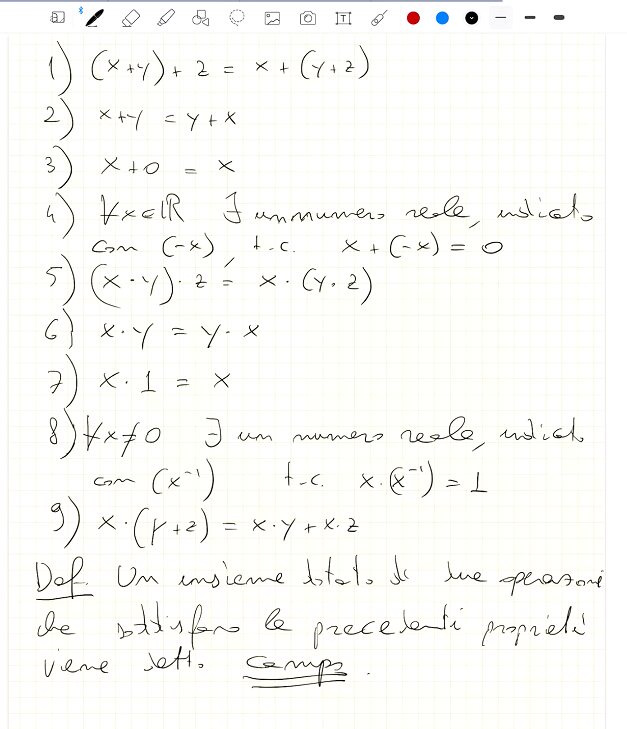 1) (x+y)+z = x+(y+z)
2) x+y = y+x
3) x+0 = x
4) ∀x∈ℝ ∃ un numero reale, indicato
con (-x), t.c. x+(-x) = 0
5) (x·y)·z = x·(y·z)
6) x·y = y·x
7) x·1 = x
8) ∀x≠0 ∃ un numero reale, indicato
con (x⁻¹) t.c. x·(x⁻¹) = 1
9) x·(y+z) = x·y+x·z
Def. Un insieme dotato di due operazioni
che soddisfano le precedenti proprietà
viene detto campo.